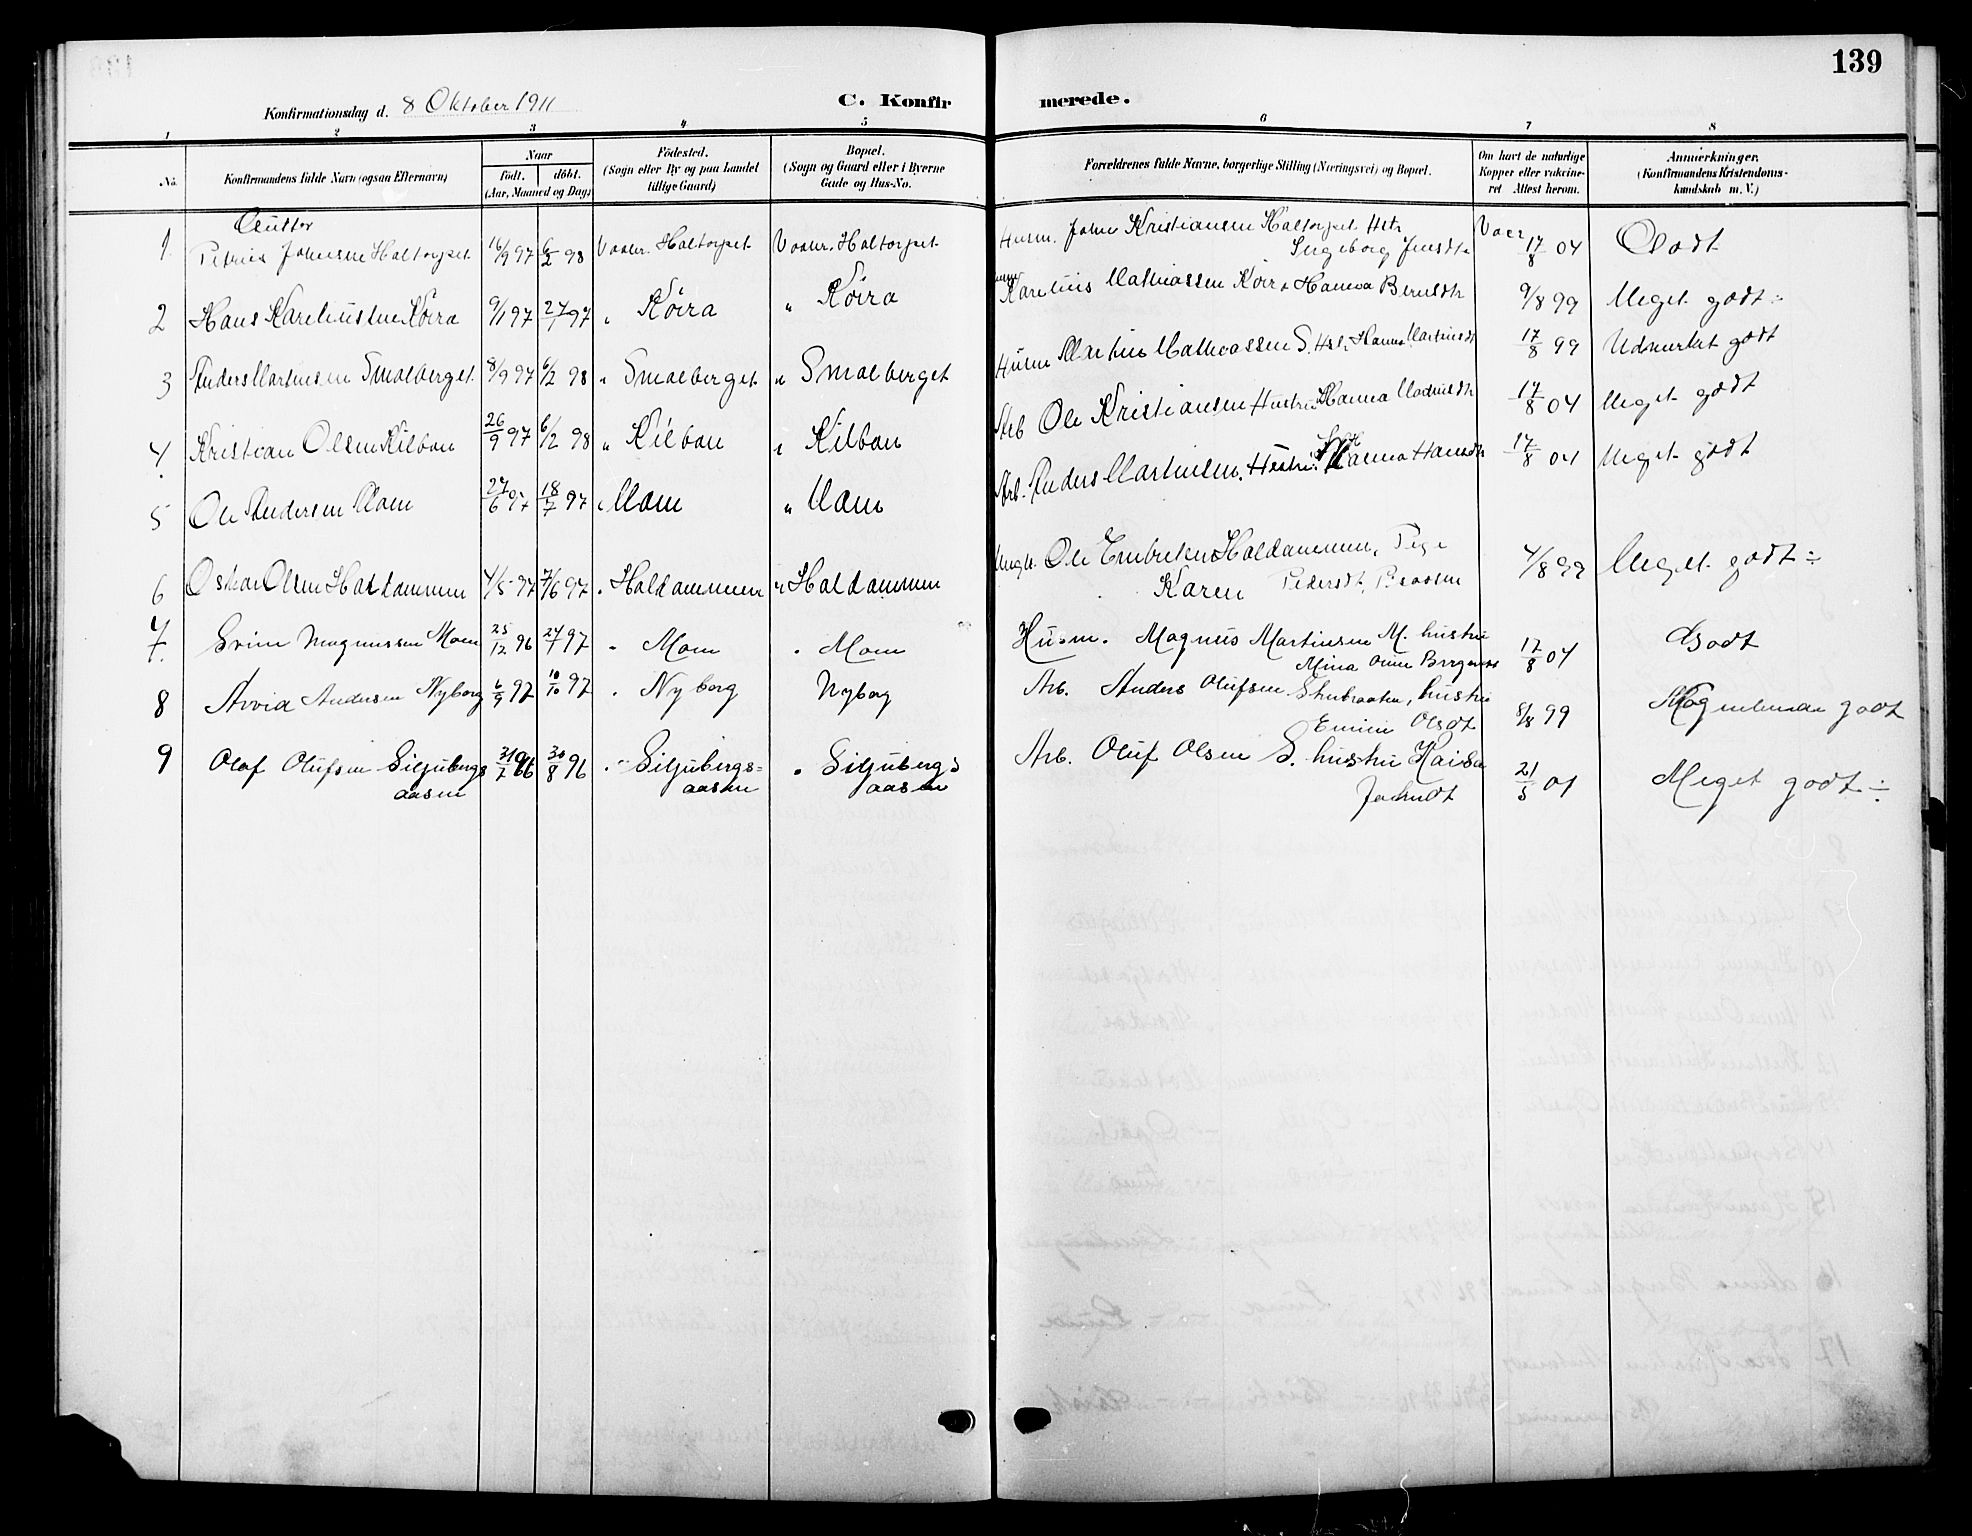 139
Konfirmationsdag d. 8 Oktober 1911 C. Konfirmerede.
1 2 3 4 5 6 7 8
No. Konfirmandens fulde Navn (ogsaa Efternavn) Naar født. døbt. (Aar, Maaned og Dag) Fødested. (Sogn eller By og paa Landet tillige Gaard) Bopæl. (Sogn og Gaard eller i Byerne Gade og Hus-No. Forældrenes fulde Navne, borgerlige Stilling (Næringsvei) og Bopæl. Om havt de naturlige Kopper eller vaccineret Attest herom. Anmærkninger. (Konfirmandens Kristendomskundskab m. V.)
Gutter
1. Petrus Johnsen Haltorpet 16/9 97 6/2 98 Vaaler. Haltorpet Vaaler. Haltorpet Husm. John Kristiansen Haltorpet Hstr
Ingeborg Vacc 17/8 04 Godt
2 Hans KareliussenKöira 9/1 97 27/1 97 " Köira " Köira Karelius Mathiassen Köira Hanna Berntsdtr 9/8 99 Meget godt ÷
3 Anders Martinsen Smalberget 8/9 97 6/2 98 " Smalberget " Smalberget Husm Martin Mathiassen S. Hstr Hanna Martinsdt 17/8 99 Udmerket godt
4. Kristian Olsen Kilban 26/9 97 6/2 98 " Kilban " Kilban Arb Ole Kristiansen Hustru Hanna 17/8 04 Meget godt
5 Ole Andersen Moen 27/6 97 18/7 97 " Moen " Moen Arb. Anders Martinsen, Hustru Hanna Hansdtr 17/8 04 Meget godt
6 Oskar Olsen Haldammen 4/5 97 7/6 97 " Haldammen " Haldammen Ungk. Ole Embretsen Haldammen, Pige
Karen Pedersdt, Braaten 4/8 99 Meget godt ÷
7. Svein Magnussen Moen 25/12 96 24/1 97 " Moen " Moen Husm. Magnus Martinsen M. hustru
Mina 17/8 04 Godt
8 Arvid Andersen Nyborg 6/9 97 10/10 97 " Nyborg Nyborg Arb. Anders Olufsen Stubraaten, hustru
Olsdt 8/8 99 godt
9 Olaf Olufsen Siljubergs 31/7 96 30/8 96 " Siljubergs= " Siljubergs Arb. Oluf Olsen S. hustru Kaisa
aasen aasen aasen 21/5 01 Meget godt ÷